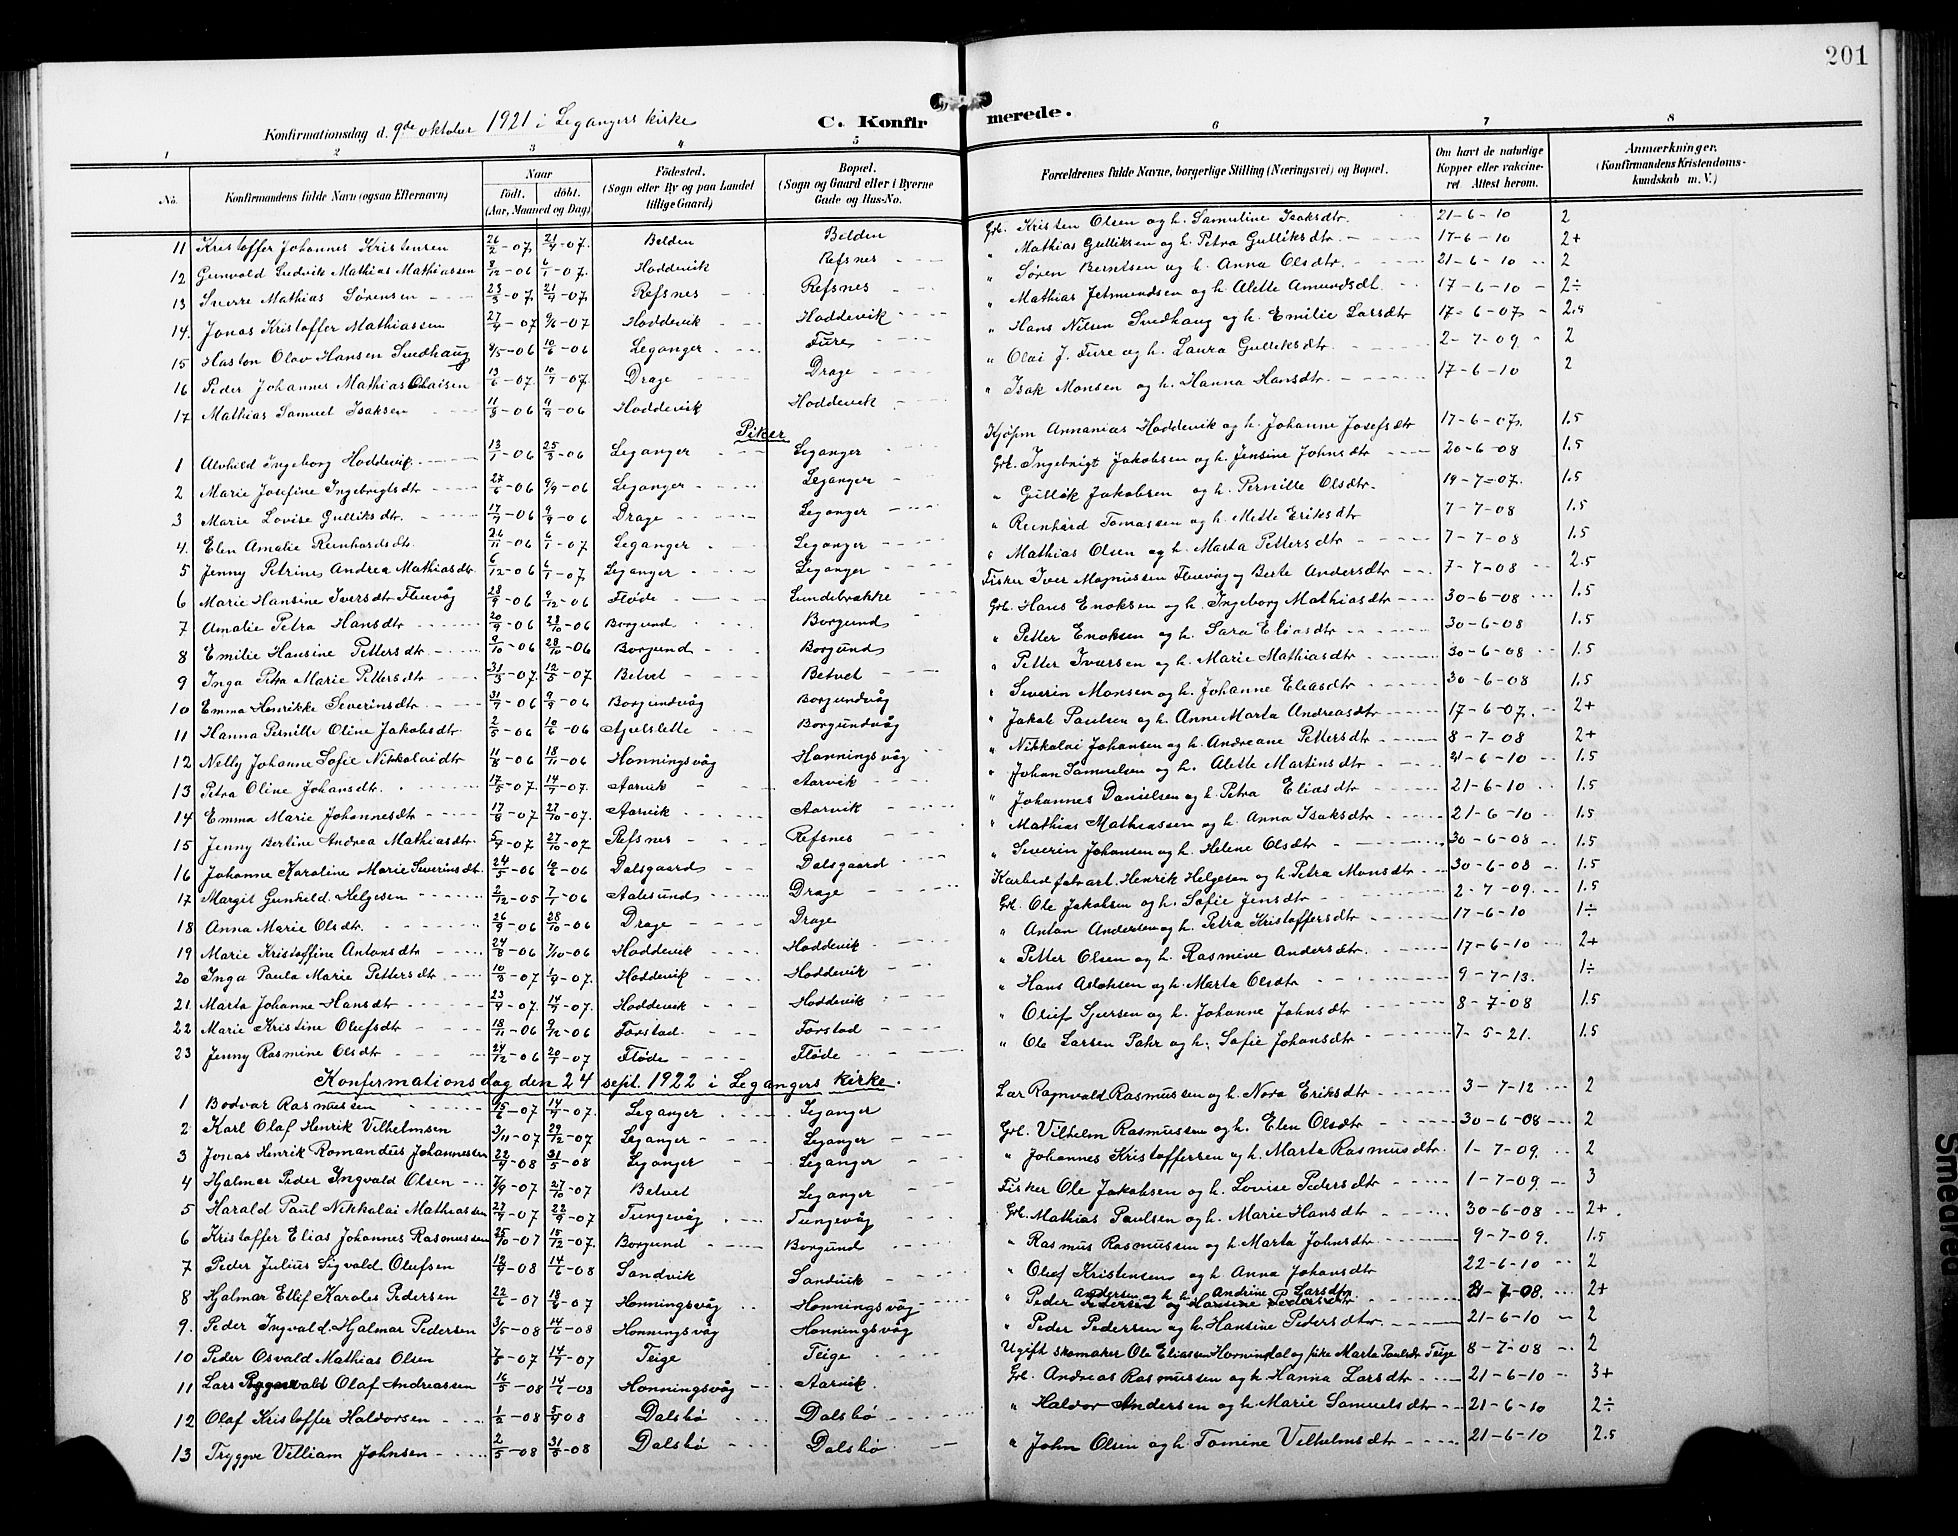 201
Konfirmationsdag d. 9de oktober 1921 i Leganger kirke C. Konfirmerede.
1 2 3 4 5 6 7 8
No. Konfirmandens fulde Navn (ogsaa Efternavn) Naar født. døbt. (Aar, Maaned og Dag) Fødested. (Sogn eller By og paa Landet tillige Gaard) Bopæl. (Sogn og Gaard eller i Byerne Gade og Hus-No. Forældrenes fulde Navne, borgerlige Stilling (Næringsvei) og Bopæl. Om havt de naturlige Kopper eller vakcineret Attest herom. Anmærkninger. (Konfirmandens Kristendomskundskab m. V.)
11 Kristoffer Johannes Kristensen 26/2-07 21/4-07 Belden Belden Grb. Kristen Olsen og h. Samuline Isaksdtr. 21-6-10 2
12 Gunvald Ludvik Mathias Mathiassen 8/12-06 6/1-07 Hoddevik Refsnes " Mathias Gulliksen og h. Petra Gulliksdtr. 17-6-10 2+
13 Sverre Mathias Sørensen 23/3-07 21/4-07 Refsnes Refsnes " Søren Berntsen og h. Anna Olsdtr. 21-6-10 2
14. Jonas Kristoffer Mathiassen 27/4-07 9/6-07 Hoddevik Hoddevik " Mathias Jetmundsen og h. Alette Amundsdt. 17-6-10 2÷
15 Haston Olav Hansen Svedhaug 4/5-06 10/6-06 Leganger Fure " Hans Nilsen Svedhaug og h. Emilie Larsdtr 17-6-07 2.5
16 Peder Johannes Mathias Olaisen 13/6-07 10/7-07 Drage Drage " Olai J. Fure og h. Laura Gulliksdtr. 2-7-09 2
17 Mathias Samuel Isaksen 11/8-06 9/9-06 Hoddevik Hoddevik " Isak Monsen og h. Hanna Hansdtr. 17-6-10 2
Piker
1 Alvhild Ingeborg Hoddevik 13/1-06 25/3-06 Leganger Leganger Kjøpm Annanias Hoddevik og h. Johanne Josefsdtr 17-6-07. 1.5
2 Marie Josefine Ingebrigtsdtr 27/6-06 9/9-06 Leganger Leganger Grb. Ingebrigt Jakobsen og h. Jensine Johnsdtr 20-6-08 1.5
3 Marie Lovise Gulliksdtr. 17/7-06 9/9-06 Drage Leganger " Gullik Jakobsen og h. Pernille Olsdtr. 19-7-07. 1.5
4. Elen Amalie Reinhardsdtr 26/11-06 6/1-07 Leganger Leganger " Reinhard Tomassen og h. Mette Eriksdtr 7-7-08 1.5
5 Jenny Petrine Andrea Mathiasdtr 6/12-06 6/1-07 Leganger Leganger " Mathias Olsen og h. Marta Pettersdtr 7-7-08 1.5
6 Marie Hansine Iversdtr Fluevåg 28/9-06 9/12-06 Fløde Sundebrække Fisker Iver Magnussen Fluevåg og Berte Andersdtr 7-7-08 2.5
7 Amalie Petra Hansdtr 20/9-06 28/10-06 Borgund Borgund Grb. Hans Enoksen og h. Ingeborg Mathiasdtr 30-6-08 1.5
8 Emilie Hansine Pettersdtr 9/10-06 28/10-06 Borgund Borgund " Petter Enoksen og h. Sara Eliasdtr 30-6-08 1.5
9 Inga Petra Marie Pettersdtr 31/3-07 12/5-07 Betvet Betvet " Petter Iversen og h. Marie Mathiasdtr 30-6-08 1.5
10 Emma Henrikke Severinsdtr 31/7-06 9/9-06 Borgundvåg Borgundvåg " Severin Monsen og h. Johanne Eliasdtr 30-6-08 1.5
11 Hanna Pernille Oline Jakobsdtr. 2/5-06 10/6-06 Apelslette Borgundvåg " Jakob Paulsen og h. Anne Marta Andreasdtr 17-6-07. 2+
12 Nelly Johanne Sofie Nikkolaidtr 11/8-06 18/11-06 Honningsvåg Honningsvåg " Nikkolai Johansen og h. Andreane Pettersdtr 8-7-08 2+
13 Petra Oline Johansdtr. 17/5-07. 14/7-07. Aarvik Aarvik " Johan Samuelsen og h. Alette Martinsdtr 21-6-10 1.5
14 Emma Marie Johannesdtr 17/8-07 27/10-07. Aarvik Aarvik " Johannes Danielsen og h. Petra Eliasdtr 21-6-10 1.5
15 Jenny Berline Andrea Mathiasdtr. 5/7-07 27/10-07 Refsnes Refsnes " Mathias Mathiassen og h. Anna Isaksdtr 21-6-10 1.5
16 Johanne Karoline Marie Severinsdt. 24/5-06 10/6-06 Dalsgaard Dalsgaard " Severin Johansen og h. Helene Olsdtr 30-6-08 1.5
17 Margit Gunhild Helgesen 2/12-05 7/1-06 Aalesund Drage Henrik Helgesen og h. Petra Monsdtr 30-6-08 1.5
18 Anna Marie Olsdtr. 26/9-06 28/10-06 Drage Drage Grb. Ole Jakobsen og h. Sofie Jensdtr 2-7-09. 1.5
19 Marie Kristoffine Antonsdtr 24/8-06 7/10-06 Hoddevik Hoddevik " Anton Andersen og h. Petra Kristoffersdtr 17-6-10 1÷
20 Inga Paula Marie Pettersdtr 10/3-07 1/4-07. Hoddevik Hoddevik " Petter Olsen og h. Rasmine Andersdtr. 17-6-10 2+
21 Marta Johanne Hansdtr 23/4-07. 14/7-07. Hoddevik Hoddevik " Hans Aslaksen og h. Marta Olsdtr 9-7-13. 1÷
22 Marie Kristine Olufsdtr 18/11-06 9/12-06 Forstad Forstad " Oluf Sjursen og h. Johanne Johnsdtr 8-7-08 1.5
23 Jenny Rasmine Olsdtr 24/12-06 20/1-07 Fløde Fløde " Ole Larsen Pahr og h. Sofie Johansdtr 7-5-21. 1.5
Konfirmationsdag den 24 sept. 1922 i Legangers kirke.
1 Bodvar Rasmussen 15/6-07 14/7-07. Leganger Leganger Lær Ragnvald Rasmussen og h. Nora Eriksdtr 3-7-12 2
2 Karl Olaf Henrik Vilhelmsen 3/11-07 29/12-07 Leganger Leganger Grb. Vilhelm Rasmussen og h. Elen Olsdtr 30-6-08 2
3 Jonas Henrik Romandus Johannessen 22/4-08 31/5-08 Leganger Leganger " Johannes Kristoffersen og h. Marta Rasmusdtr. 1-7-09. 2
4 Hjalmar Peder Ingvald Olsen 7/9-07 27/10-07 Betvet Leganger Fisker Ole Jakobsen og h. Lovise Pedersdtr 1-7-09. 3
5 Harald Paul Nikkolai Mathiassen 27/7-07 22/9-07 Tungevåg Tungevåg Grb. Mathias Paulsen og h. Marie Hansdtr 30-6-08 2+
6 Kristoffer Elias Johannes Rasmussen 25/10-07 15/12-07. Borgund Borgund " Rasmus Rasmussen og h. Marta Johnsdtr 9-7-09. 1.5
7 Peder Julius Sigvald Olufsen 12/4-08 14/6-08 Sandvik Sandvik " Oluf Kristensen og h. Anna Johansdtr 22-6-10 2
8 Hjalmar Ellif Karolus Pedersen 22/6-07 18/8-07 Honningsvåg Honningsvåg " Peder Andersen og h. Andrine Larsdtr. 21-7-08. 2+
9. Peder Ingvald Hjalmar Pedersen 3/5-08 14/6-08 Honningsvåg Honningsvåg " Peder Pedersen og h. Hansine Pedersdtr. 21-6-10 2
10 Peder Osvald Mathias Olsen 7/5-07 14/7-07 Teige Teige Ugift skomaker Ole Eliassen Hornindal og pike Marta Paulsdtr Teige 8-7-08 2
11 Lars Olaf Andreassen 16/5-08 14/6-08 Honningsvåg Aarvik. Grb. Andreas Rasmussen og h. Hanna Larsdtr 21-6-10 3+
12 Olaf Kristoffer Haldorsen 1/3-08 5/4-08 Dalsbø Dalsbø " Haldor Andersen og h. Marie Samuelsdtr 21-6-10 2÷
13 Tryggve Villiam Johnsen 2/5-08 31/5-08 Dalsbø Dalsbø " John Olsen og h. Tomine Vilhelmsdtr 21-6-10 2.5